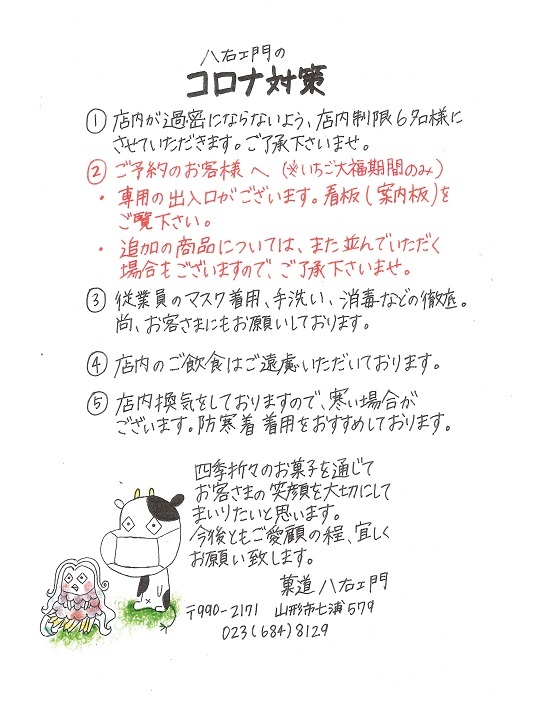 八右エ門の
コロナ対策
① 店内が過密にならないよう、店内制限6名様に
させていただきます。ご了承下さいませ。
② ご予約のお客様へ (※いちご大福期間のみ)
・専用の出入口がございます。看板(案内板)を
ご覧下さい。
・追加の商品については、また並んでいただく
場合もございますので、ご了承下さいませ。
③ 従業員のマスク着用、手洗い、消毒などの徹底。
尚、お客さまにもお願いしております。
④ 店内のご飲食はご遠慮いただいております。
⑤ 店内換気をしておりますので、寒い場合が
ございます。防寒着 着用をおすすめしております。
四季折々のお菓子を通じて
お客さまの笑顔を大切にして
まいりたいと思います。
今後ともご愛顧の程、宜しく
お願い致します。
菓道 八右エ門
〒990-2171 山形市七浦579
023(684)8129